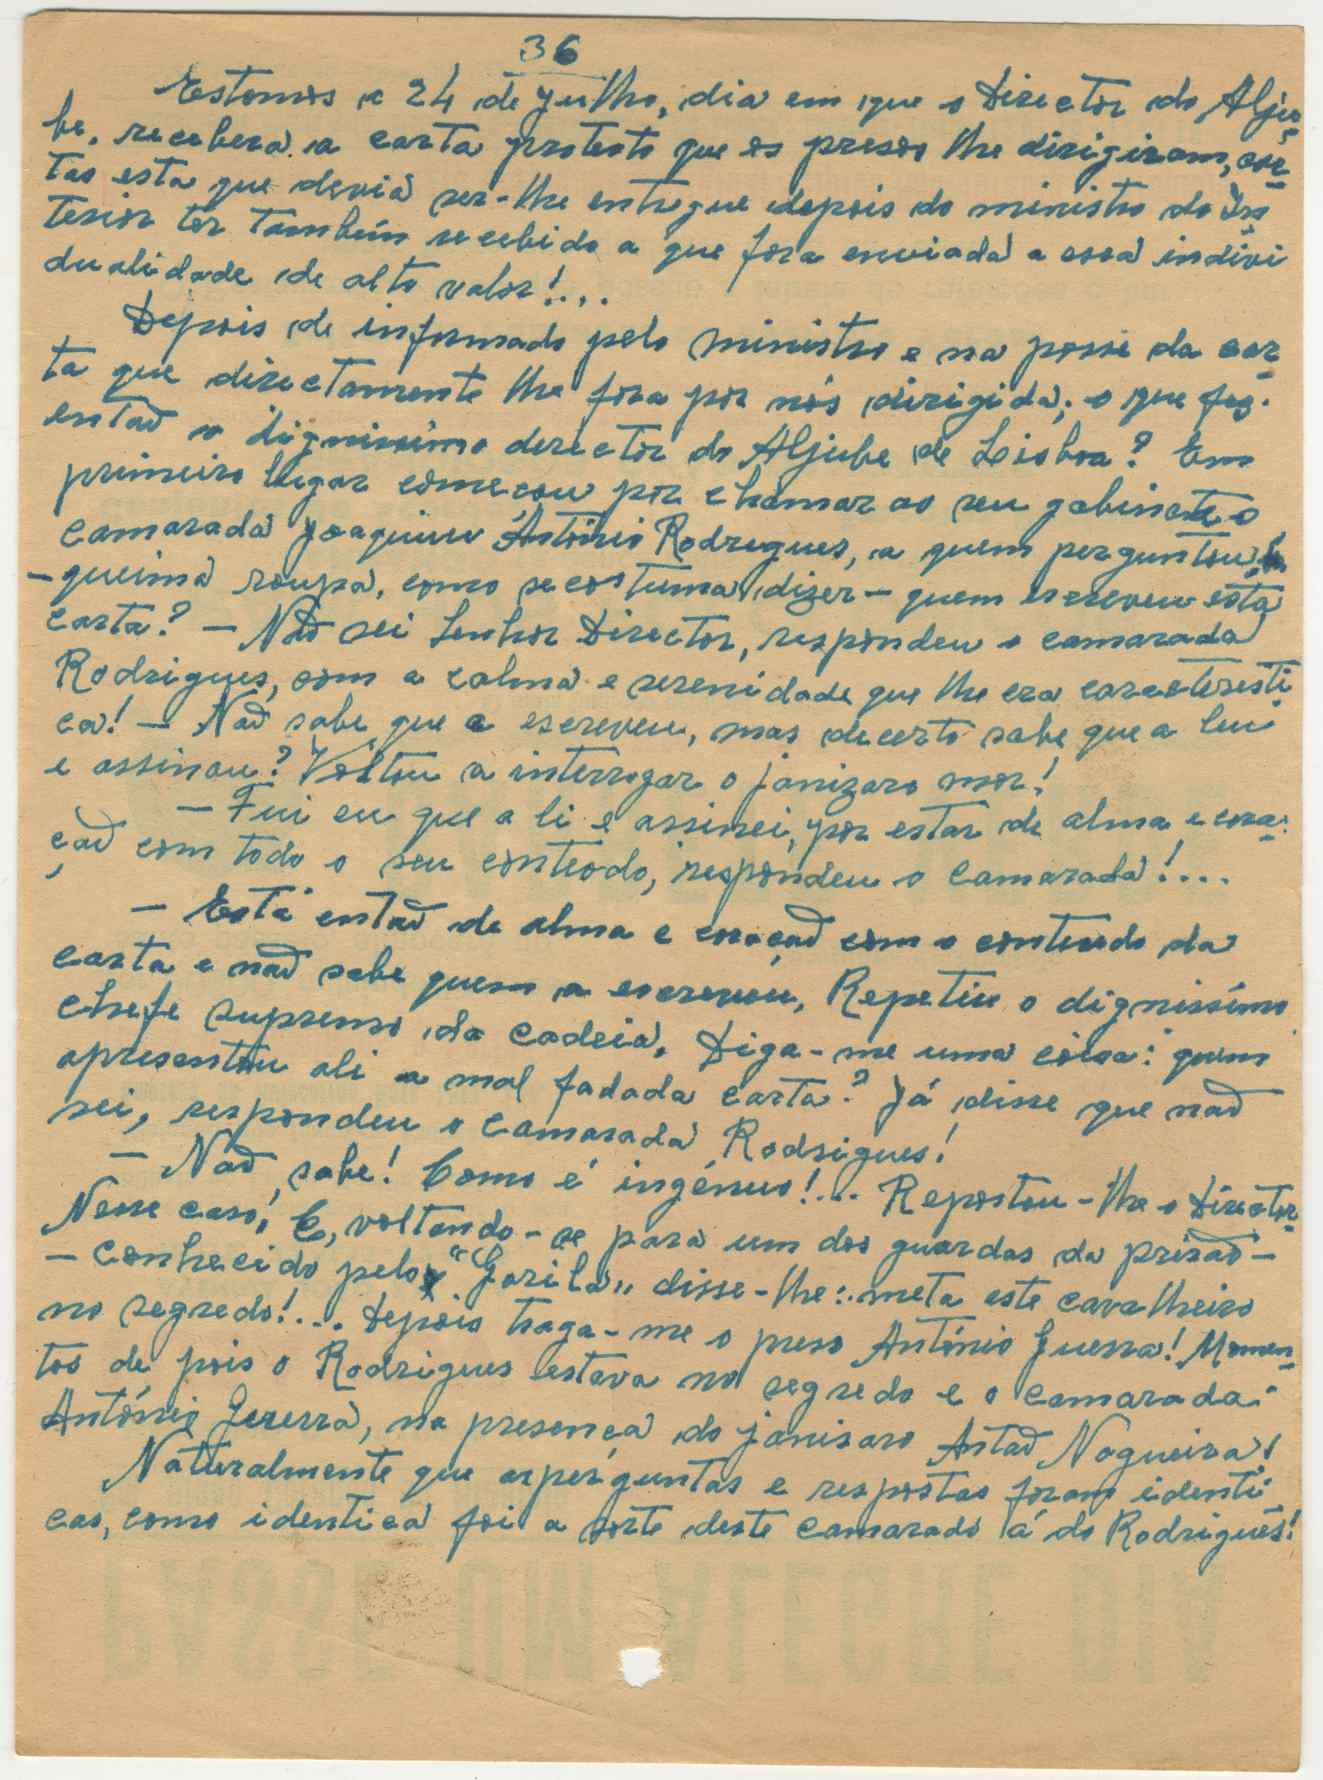 36
Estamos a 24 de Julho, dia em que o Director do Alju-
be, recebera a carta protesto que os presos lhe dirigiram, car-
tas esta que devia ser-lhe entregue depois do ministro do In-
terior ter também recebido a que fora enviada a essa indivi
dualidade de alto valor!...
Depois de informado pelo ministro e na posse da car-
ta que directamente lhe fora por nós dirigida; o que fez
entaõ o dignissimo director do Aljube de Lisboa? Em
primeiro lugar começou por chamar ao seu gabinete o
camarada Joaquim António Rodrigues, a quem perguntou,
-queima roupa, como se costuma dizer- quem escreveu esta
carta? - Naõ sei Senhor Director, respondeu o camarada
Rodrigues, com a calma e serenidade que lhe era caracteresti
ca! - Naõ sabe que a escreveu, mas decerto sabe que a leu
e assinou? Voltou a interrogar o janizaro mor!
- Fui eu que a li e assinei, por estar de alma e cora-
çaõ com todo o seu conteodo, respondeu o camarada!...
- Está entaõ de alma e coraçaõ com o conteudo da
carta e naõ sabe quem a escreveu, Repetiu o dignissimo
chefe supremo da cadeia. Diga-me uma coisa: quem
apresentou ali a mal fadada carta? Já disse que naõ
sei, respondeu o camarada Rodrigues!
- Naõ sabe! Como é ingénuo!... Repostou-lhe o Director-
Nesse caso, E, voltando-se para um dos guardas da prisaõ-
- conhecido pelo "Gorila" disse-lhe: meta este cavalheiro
no segredo!... Depois traga-me o preso António Guerra! Momen-
tos de pois o Rodrigues estava no segredo e o camarada
António Guerra, na presença do janisaro Antaõ Nogueira!
Naturalmente que as perguntas e respostas foram identi
cas, como identica foi a sorte deste camarada á do Rodrigues!
PASSE UM ALEGRE DIA